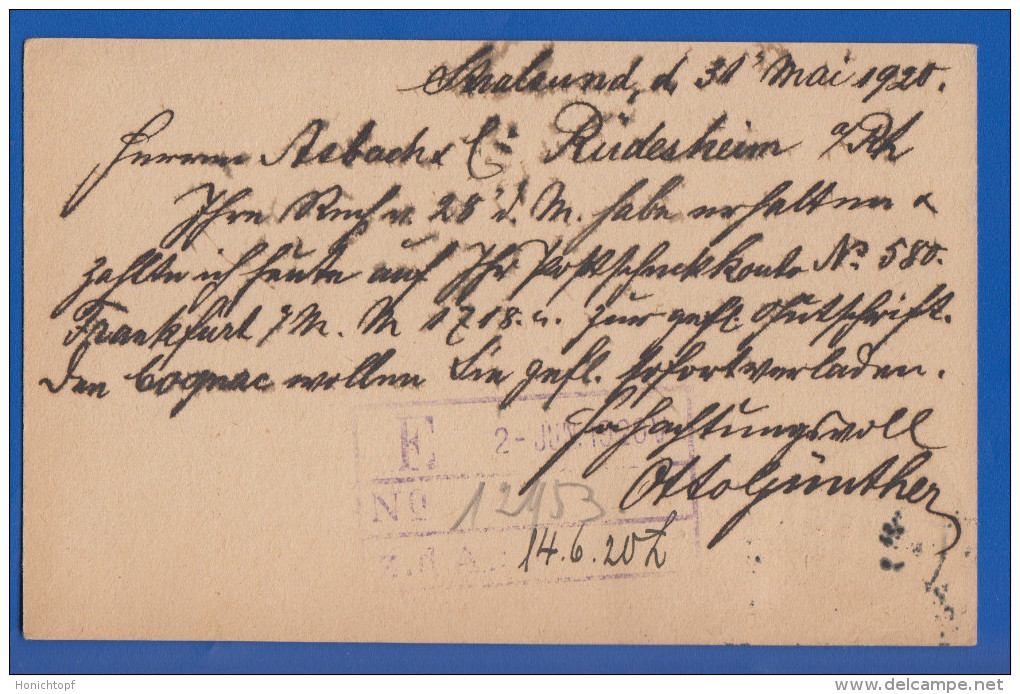 Stralsund, d. 31' Mai 1920.
Herren Asbach & Co Rüdesheim a/Rh
Ihre Rech v. 28' d. M. habe erhalten &
zahlte ich heute auf Ihr Postscheckkonto No. 580.
Frankfurt /M. M 1718. zur gefl. Gutschrift.
Den Cognac wollen Sie gefl. sofort verladen.
Hochachtungsvoll
Otto Günther
E 2-JUN.1920
No 12453
14.6.20
Honichtopf
delcampe.net